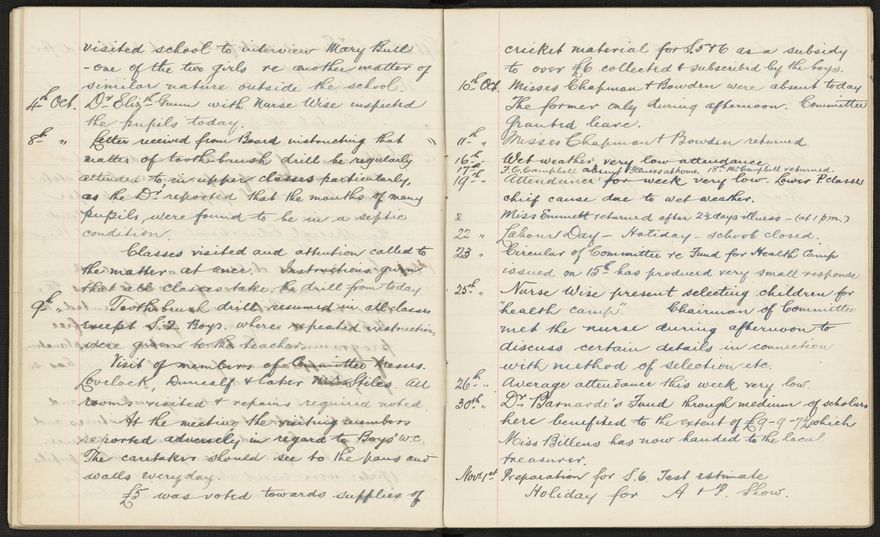 visited school to interview Mary Bull
- one of the two girls re another matter of
similar nature outside the school.
4th Oct. Dr Elizth Gunn with Nurse Wise inspected
the pupils today.
8th " Letter received from Board instructing that "
matter of tooth brush drill be regularly
attended to in upper classes particularly,
as the Dr reported that the mouths of many
pupils were found to be in a septic
condition.
Classes visited and attention called to
the matter at once. Instructions given
that all classes take the drill from today.
9th " Tooth brush drill resumed in all classes
except S.2 Boys. where repeated instructions
were given to the teacher.
Visit of members of Committee Messrs.
Lovelock, Duncalf & later Stiles. All
rooms visited & repairs required noted
At the meeting the visiting members
reported adversely in regard to Boys' W.C.
The caretaker should see to the pans and
walls everyday.
£5 was voted towards supplies of
cricket material for S.5 & 6 as a subsidy
to over £6 collected & subscribed by the boys.
10th Oct. Misses Chapman & Bowden were absent today
The former only during afternoon. Committee
granted leave.
11th " Misses Chapman & Bowden returned
16th " Wet weather very low attendance
17th " F.C. Campbell absent illness at home. 18th Mr Campbell returned.
19th " Attendance for week very low. Lower P. classes
chief cause due to wet weather.
& Miss Emmett returned after 2½ days illness - (at 1 p.m.)
22 " Labour Day - Holiday - school closed.
23 " Circular of Committee re Fund for Health Camp
issued on 15th has produced very small response.
25th " Nurse Wise present selecting children for
"health camp". Chairman of Committee
met the nurse during afternoon to
discuss certain details in connection
with method of selection etc.
26th " Average attendance this week very low.
30th " Dr Barnardo's Fund through medium of scholars
here benefited to the extent of £9-9-7½ which
Miss Billens has now handed to the local
treasurer.
Nov 1st Preparation for S.6. Test estimate
Holiday for A & P. Show.